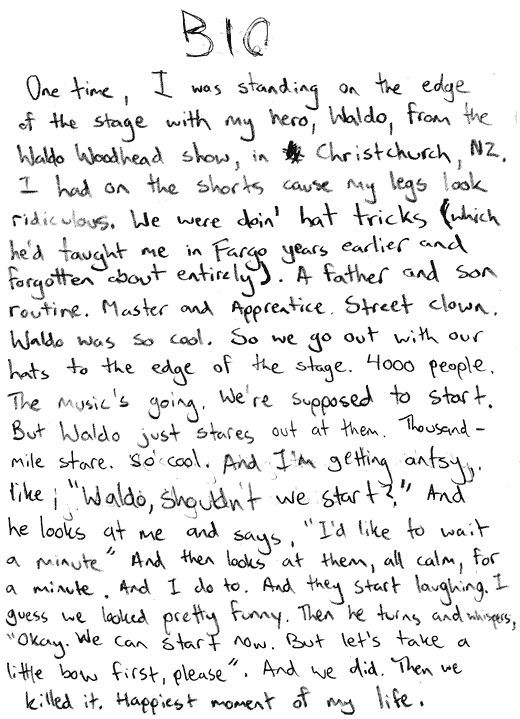 BIO
One time, I was standing on the edge
of the stage with my hero, Waldo, from the
Waldo Woodhead show, in Christchurch, NZ.
I had on the shorts cause my legs look
ridiculous. We were doin' hat tricks (which
he'd taught me in Fargo years earlier and
forgotten about entirely). A father and son
routine. Master and Apprentice. Street clown.
Waldo was so cool. So we go out with our
hats to the edge of the stage. 4000 people.
The music's going. We're supposed to start.
But Waldo just stares out at them. Thousand-
mile stare. So cool. And I'm getting antsy,
like, "Waldo, shouldn't we start?" And
he looks at me and says, "I'd like to wait
a minute" And then looks at them, all calm, for
a minute. And I do to. And they start laughing. I
guess we looked pretty funny. Then he turns and whispers,
"Okay. We can start now. But let's take a
little bow first, please". And we did. Then we
killed it. Happiest moment of my life.